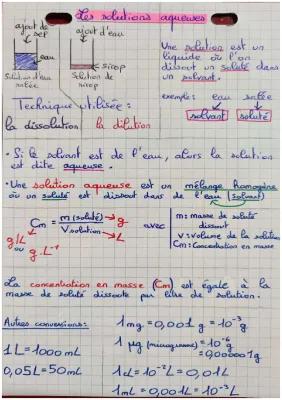 Les solutions aqueuses
ajout de sel
eau
Solution d'eau salée
ajout d'eau
sirop
Solution de sirop
Technique utilisée :
la dissolution
la dilution
Une solution est un
liquide où l'on
dissout un soluté dans
un solvant.
exemple : eau salée
solvant soluté
• Si le solvant est de l'eau, alors la solution
est dite aqueuse.
• Une solution aqueuse est un mélange homogène
où un soluté est dissout dans de l'eau (solvant)
Cm = m(soluté) → g
V solution → L
g/L
ou g.L⁻¹
avec
m : masse de soluté
dissout
V : volume de la solution
Cm : Concentration en masse
La concentration en masse (Cm) est égale à la
masse de soluté dissoute par litre de solution.
Autres conversions :
1L = 1000 mL
0,05L = 50mL
1 mg = 0,001 g = 10⁻³ g
1 µg (microgramme) = 10⁻⁶ g
= 0,000001g
1cL = 10⁻² L = 0,01L
1mL = 0,001L = 10⁻³ L